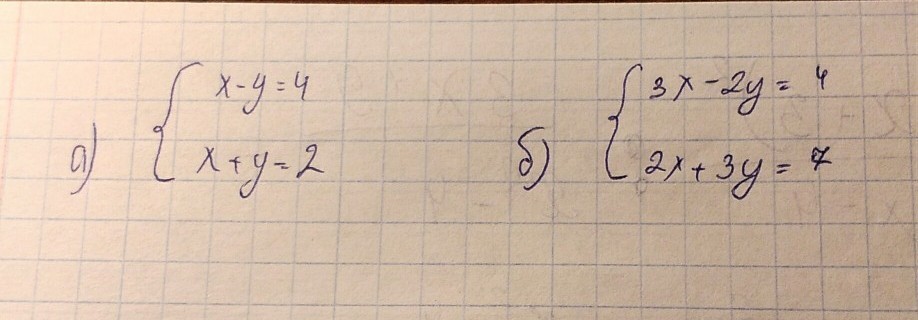 а) { x-y=4
x+y=2
б) { 3x-2y=4
2x+3y=7